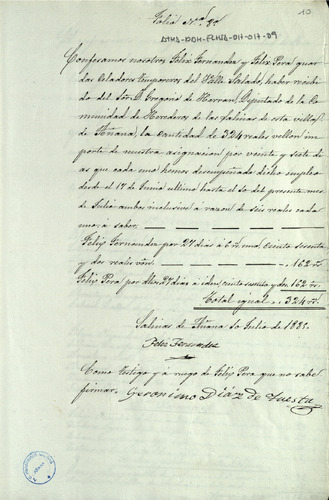 10
Folio Nº 80
ATHA-DDH-FCHVA-017-017-09
Confesamos nosotros Felix Fernandez y Felix Pera guar
das Celadores temporeros del Valle Salado, haber recibi
do del Sor. D. Gregorio de Herran, Diputado de la Co
munidad de Herederos de las Salinas de esta villa
de Añana, la cantidad de 324 reales vellon, im
porte de nuestra asignacion por veinte y siete di
as que cada uno hemos desempeñado dicho empleo
desde el 17 de Junio ultimo hasta el 10 del presente mes
de Julio ambos inclusive á razon de seis reales cada
uno: á saber
Felix Fernandez por 27 dias á 6 rs. uno ciento sesenta
y dos reales vón 162 rs
Felix Pera por dhos 27 dias á iden ciento sesenta y dos 162 rs
Total igual 324 rs
Salinas de Añana 10 Julio de 1881
Felix Fernandez
Como testigo y á ruego de Felix Pera que no sabe
firmar. Geronimo Diaz de Tuesta